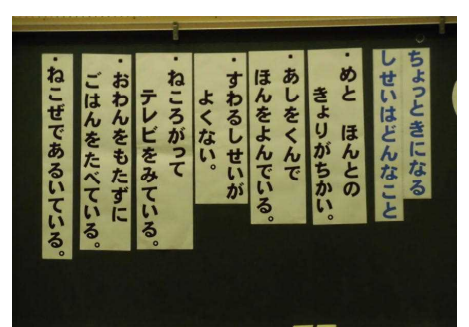 ちょっときになる
しせいはどんなこと
・めと　ほんとの
きょりがちかい。
・あしをくんで
ほんをよんでいる。
・すわるしせいが
よくない。
・ねころがって
テレビをみている。
・おわんをもたずに
ごはんをたべている。
・ねこぜであるいている。